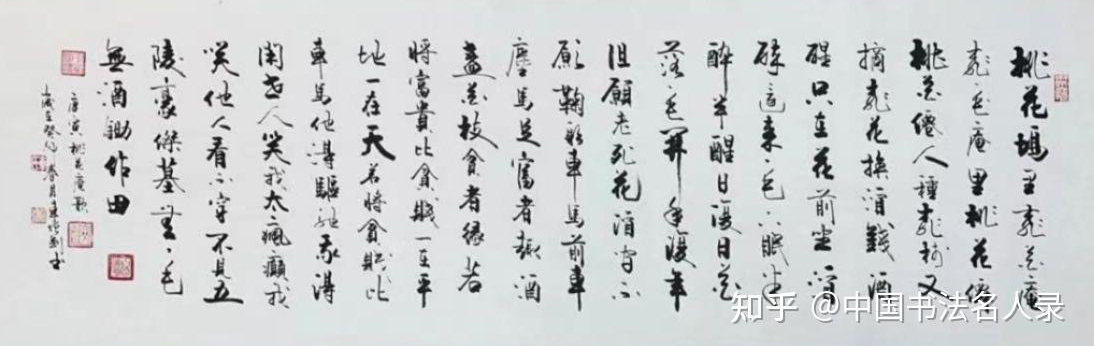 桃花塢里桃花庵
桃花庵里桃花僊
桃花僊人種桃樹又
摘桃花換酒錢酒
醒只在花前坐酒
醉還來花下眠半
醉半醒日復日花
落花開年復年
但願老死花酒間不
願鞠躬車馬前車
塵馬足富者趣酒
盞花枝貧者緣若
將富貴比貧賤一在平
地一在天若將貧賤比
車馬他得驅馳我得
閑世人笑我太瘋癲我
笑他人看不穿不見五
陵豪傑墓無花
無酒鋤作田
唐寅桃花庵歌
歲在癸卯春月書
知乎 @中国书法名人录